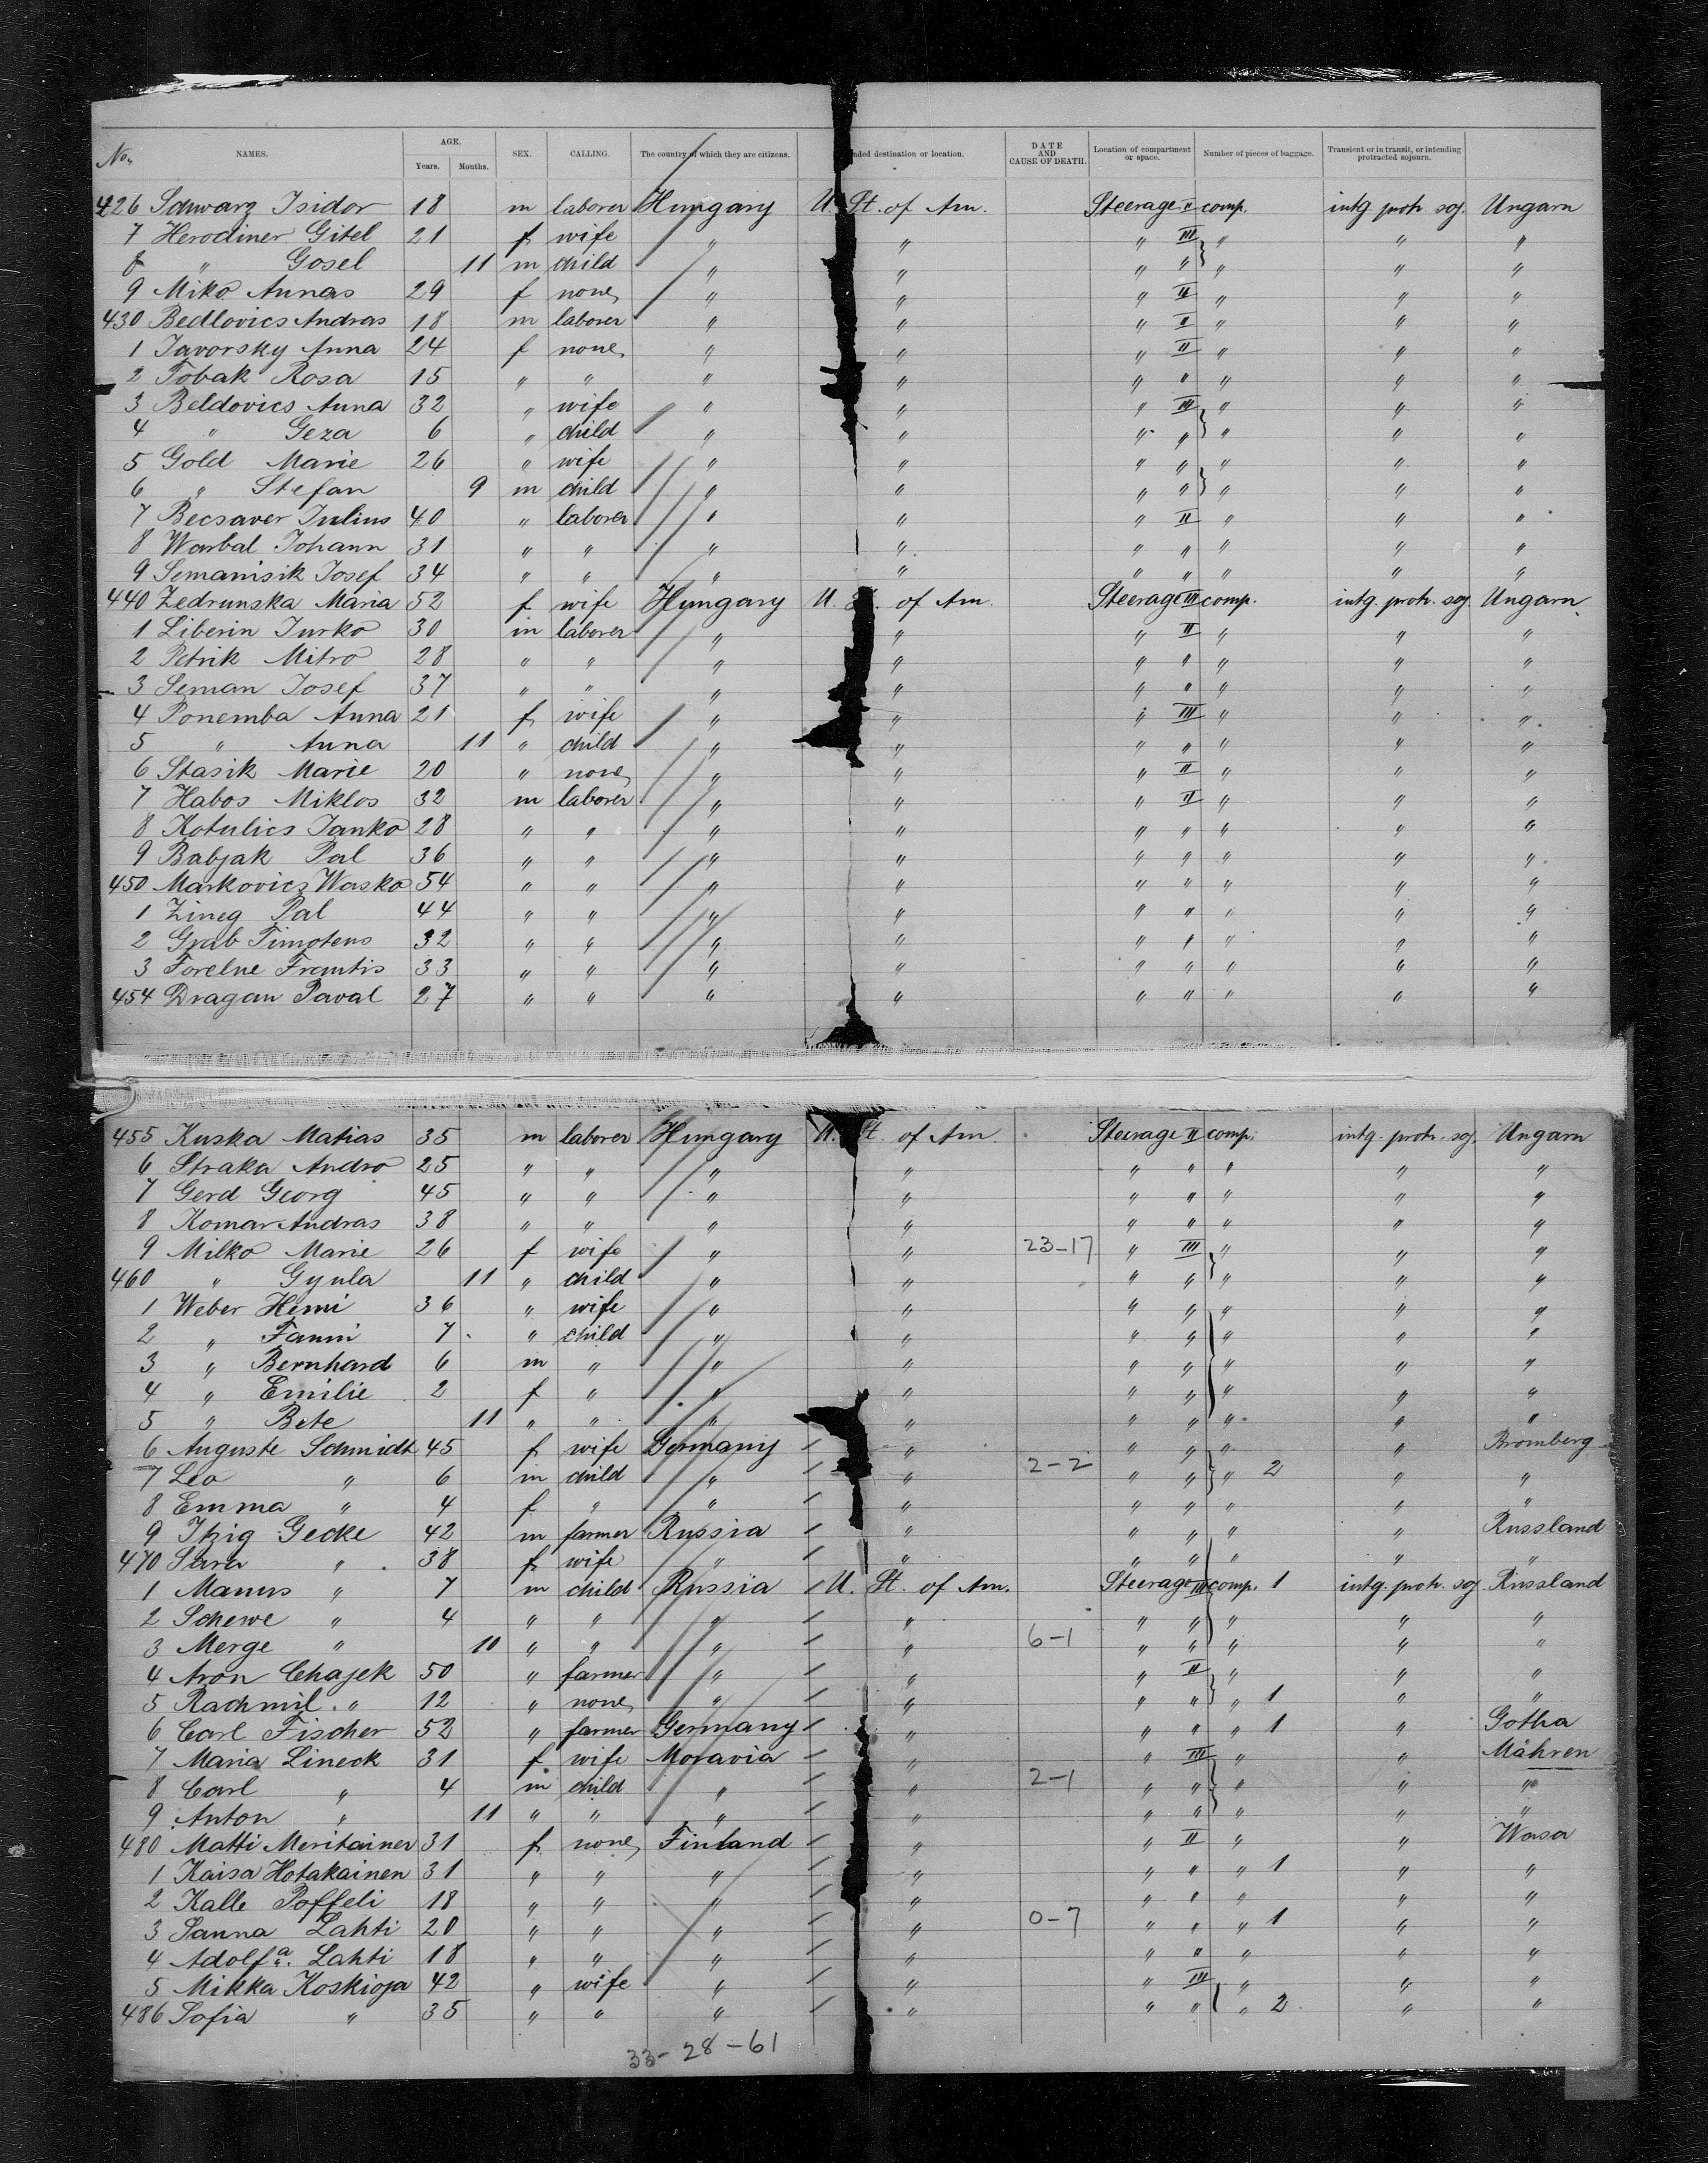 No. NAMES. AGE. Years. Months. SEX. CALLING. The country of which they are citizens. nded destination or location. DATE AND CAUSE OF DEATH. Location of compartment or space. Number of pieces of baggage. Transient or in transit, or intending protracted sojourn.
426 Schwarz Isidor 18 m laborer Hungary U. St. of Am. Steerage II comp. intg. protr. soj. Ungarn
7 Herodiner Gitel 21 f wife " " " III " " "
8 " Gosel 11 m child " " " " " " "
9 Miko Annas 29 f none " " " II " " "
430 Bedlovics Andras 18 m laborer " " " II " " "
1 Javorsky Anna 24 f none " " " II " " "
2 Tobak Rosa 15 " " " " " " " " "
3 Beldovics Anna 32 " wife " " " III " " "
4 " Geza 6 " child " " " " " " "
5 Gold Marie 26 " wife " " " " " " "
6 " Stefan 9 m child " " " " " " "
7 Becsaver Julius 40 " laborer " " " II " " "
8 Warbal Johann 31 " " " " " " " " "
9 Semanisik Josef 34 " " " " " " " " "
440 Zedrunska Maria 52 f wife Hungary U. St. of Am. Steerage III comp. intg. protr. soj. Ungarn
1 Liberin Jurko 30 m laborer " " " II " " "
2 Petrik Mitro 28 " " " " " " " " "
3 Seman Josef 37 " " " " " " " " "
4 Ponemba Anna 21 f wife " " " III " " "
5 " Anna 11 " child " " " " " " "
6 Stasik Marie 20 " none " " " II " " "
7 Habos Miklos 32 m laborer " " " II " " "
8 Kotulics Janko 28 " " " " " " " " "
9 Babjak Pal 36 " " " " " " " " "
450 Markovics Wasko 54 " " " " " " " " "
1 Zineg Pal 44 " " " " " " " " "
2 Grab Timoteus 32 " " " " " " " " "
3 Forelne Frantis 33 " " " " " " " " "
454 Dragan Paval 27 " " " " " " " " "
455 Kuska Matias 35 m laborer Hungary U. St. of Am. Steerage II comp. intg. protr. soj. Ungarn
6 Straka Andro 25 " " " " " " " " "
7 Gerd Georg 45 " " " " " " " " "
8 Komar Andras 38 " " " " " " " " "
9 Milko Marie 26 f wife " " 23-17 " III " " "
460 " Gyula 11 " child " " " " " " "
1 Weber Hemi 36 " wife " " " " " " "
2 " Fanni 7 " child " " " " " " "
3 " Bernhard 6 m " " " " " " " "
4 " Emilie 2 f " " " " " " " "
5 " Bete 11 " " " " " " " " "
6 Auguste Schmidt 45 f wife Germany " " " " " Bromberg
7 Leo " 6 m child " " 2-2 " " " 2 " "
8 Emma " 4 f " " " " " " " "
9 Itzig Gecke 42 m farmer Russia " " " " " Russland
470 Sara " 38 f wife " " " " " " "
1 Manus " 7 m child Russia U. St. of Am. Steerage III comp. 1 intg. protr. soj. Russland
2 Schewe " 4 " " " " " " " " "
3 Merge " 10 " " " " 6-1 " " " " "
4 Aron Chajek 50 " farmer " " " II " " "
5 Rachmil " 12 " none " " " " " 1 " "
6 Carl Fischer 52 " farmer Germany " " " " 1 " Gotha
7 Maria Lineck 31 f wife Moravia " " III " " Mähren
8 Carl " 4 m child " " 2-1 " " " " "
9 Anton " 11 " " " " " " " " "
480 Matti Meritainer 31 f none Finland " " II " " Wasa
1 Kaisa Hotakainen 31 " " " " " " " 1 " "
2 Kalle Poffeli 18 " " " " " " " " "
3 Sanna Lahti 20 " " " " 0-7 " " " 1 " "
4 Adolf a. Lahti 18 " " " " " " " " "
5 Mikka Koskioja 42 " wife " " " III " " "
486 Sofia " 35 " " " " " " " 2 " "
33-28-61